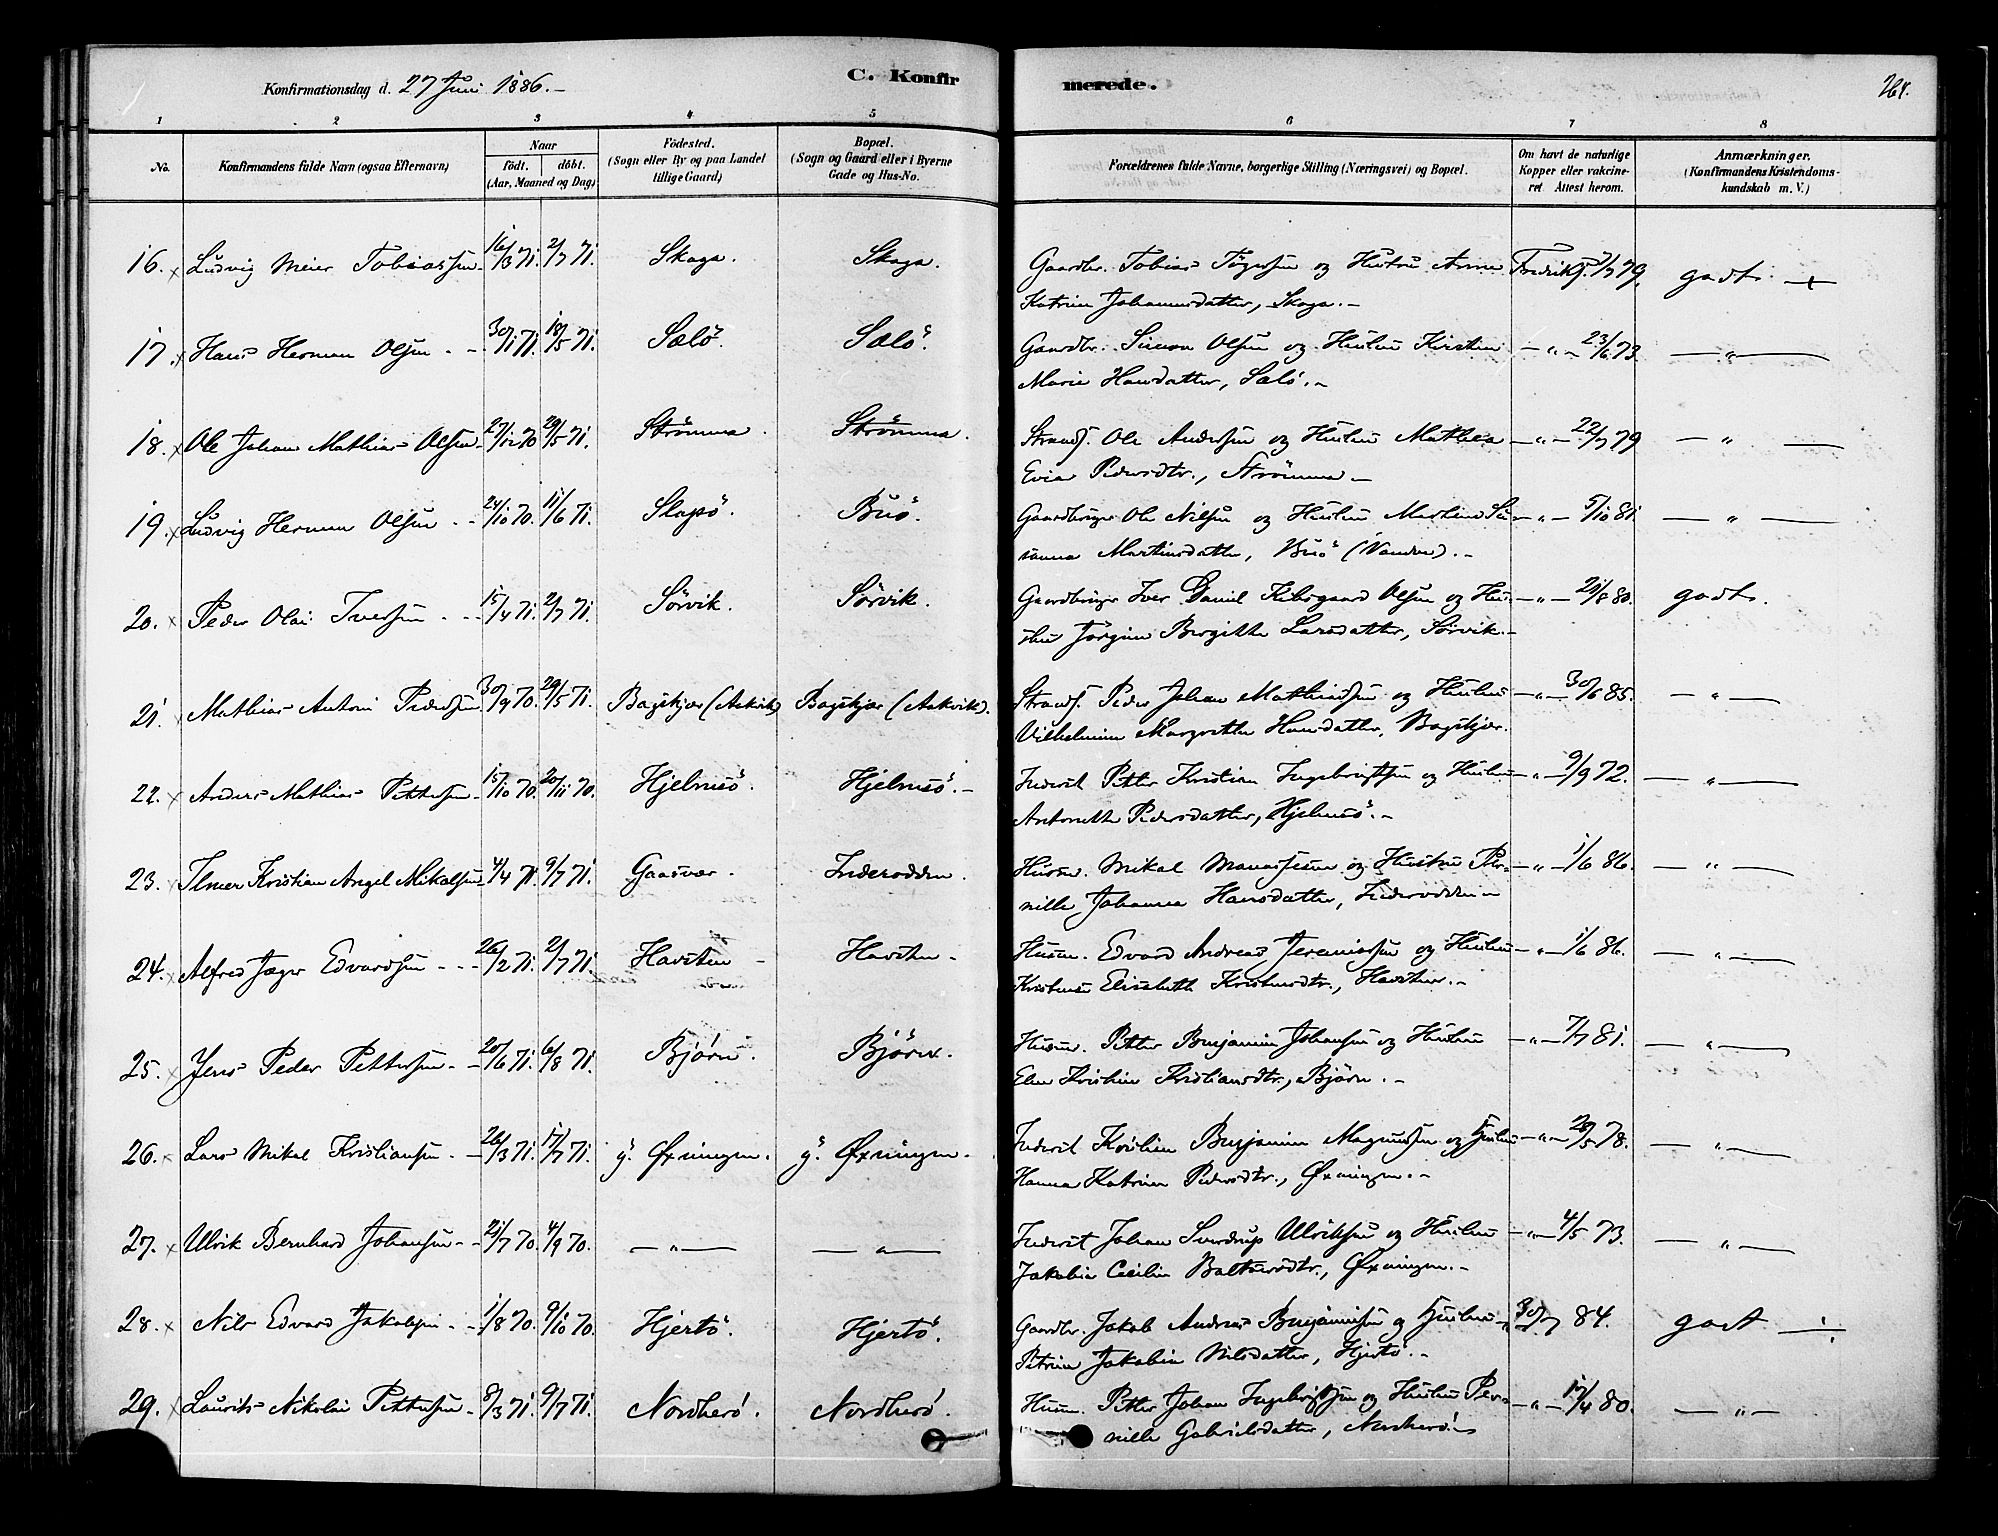 Konfirmationsdag d. 27 Juni 1886.-
C. Konfirmerede.
264.
1 2 3 4 5 6 7 8
No.
Konfirmandens fulde Navn (ogsaa Efternavn)
Naar
födt. döbt.
(Aar, Maaned og Dag)
Födested.
(Sogn eller By og paa Landet
tillige Gaard)
Bopæl.
(Sogn og Gaard eller i Byerne
Gade og Hus-No.
Forældrenes fulde Navne, borgerlige Stilling (Næringsvei) og Bopæl.
Om havt de naturlige
Kopper eller vakcine-
ret Attest herom.
Anmærkninger.
(Konfirmandens Kristendoms-
kundskab m. V.)
16. x Ludvig Meier Tobiassen 16/3 71. 2/7 71. Skaga. Skaga. Gaardbr. Tobias Tøgersen og Hustru Anne 7/7 79. godt. +
Katrine Johannesdatter, Skaga.-
17. x Hans Herman Olsen - - 30/1 71. 18/5 71. Sælö. Sælö. Gaardbr. Simon Olsen og Hustru Kirstine - " - 23/6 73. - " -
Marie Hansdatter, Sælö.-
18. x Ole Johan Mathias Olsen 27/12 70 29/5 71. Strömma. Strömma. Strands. Ole Andersen og Hustru Mathea - " - 22/7 79 - " -
Evia Pedersdtr., Strömma -
19. x Ludvig Herman Olsen - - 24/10 70. 11/6 71. Slapö. Buö. Gaardbruger Ole Nilsen og Hustru Martine Su- - " - 5/10 81. - " -
sanna Martinsdatter, Buö (Vandve).-
20. x Peder Olai Iversen - - 15/4 71. 2/7 71. Sörvik. Sörvik. Gaardbruger Iver Daniel Kibsgaard Olsen og Hu- - " - 21/8 80. godt.
stru Jørgine Birgitte Larsdatter, Sörvik.-
21. x Mathias Antoni Pedersen 30/9 70. 29/5 71. Bagskjær (Aakvik) Bagskjær (Aakvik). Strands. Peder Johan Mathiassen og Hustru - " - 30/6 85. - " -
Vilhelmine Margrethe Hansdatter, Bagskjær.
22. x Anders Mathias Pettersen - 15/10 70. 20/11 70. Hjelmsö. Hjelmsö.- Inderst Petter Kristian Ingebrigtsen og Hustru - " - 9/9 72. - " -
Antonette Pedersdatter, Hjelmsö.-
23. Ilmer Kristian Angel Mikalsen 4/4 71. 9/7 71. Gaasvær. Inderodden. Husm. Mikal Manassesen og Hustru Per- - " - 1/6 86. - " -
nille Johanna Hansdatter, Inderodden -
24. x Alfred Jæger Edvardsen - - - 26/2 71. 2/7 71. Havsten - Havsten - Husm. Edvard Andreas Jeremiassen og Hustru - " - 1/6 86. - " -
Kristense Elisabeth Kristensdtr., Havsten.-
25. x Jens Peder Pettersen - - 20/6 71. 6/8 71. Bjørn. Bjørn. Husm. Petter Benjamin Johansen og Hustru - " - 7/7 81. - " -
Else Kristine Kristiansdtr., Bjørn.-
26. x Lars Mikal Kristiansen - - 26/3 71. 17/7 71. y. Øxningen. y. Øxningen. Inderst Kristian Benjamin Magnussen og Hustru - " - 28/5 78. - " -
Hanna Katrine Pedersdtr., Øxningen.-
27. x Ulrik Bernhard Johansen - - 21/7 70. 4/9 70. - " - - " - Inderst Johan Sverdrup Ulriksen og Hustru - " - 4/5 73. - " -
Jakobia Cecilie Baltsersdtr., Øxningen.-
28. x Nils Edvard Jakobsen - - 1/8 70. 9/10 70. Hjertö. Hjertö. Gaardbr. Jakob Andreas Benjaminsen og Hustru - " 30/7 84. godt
Petrine Jakobine Nilsdatter, Hjertö.-
29. x Laurits Nikolai Pettersen - 8/3 71. 9/7 71. Nordherö. Nordherö. Husm. Petter Johan Ingebrigtsen og Hustru Per- - " - 17/4 80. - " -
nille Gabrielsdatter, Nordherö.